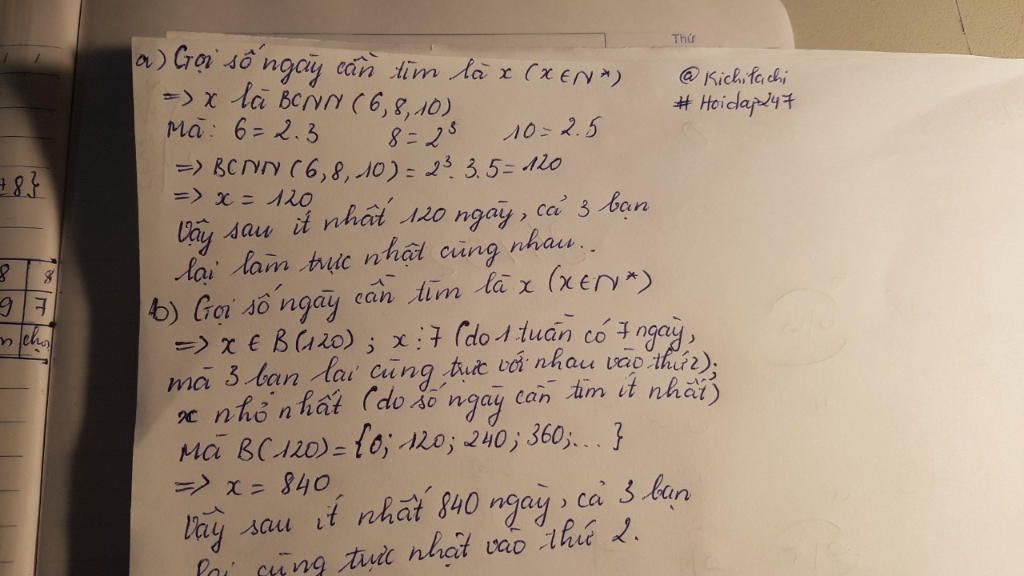 Thứ
a) Gọi số ngày cần tìm là x (x ∈ N*)
@Kichitachi
#Hoidap247
=> x là BCNN (6, 8, 10)
Mà: 6 = 2.3 8 = 2³ 10 = 2.5
=> BCNN (6, 8, 10) = 2³. 3.5 = 120
=> x = 120
Vậy sau ít nhất 120 ngày, cả 3 bạn
lại làm trực nhật cùng nhau..
b) Gọi số ngày cần tìm là x (x ∈ N*)
=> x ∈ B(120) ; x ⋮ 7 (do 1 tuần có 7 ngày,
mà 3 bạn lại cùng trực với nhau vào thứ 2);
x nhỏ nhất (do số ngày cần tìm ít nhất)
Mà B(120) = {0; 120; 240; 360;... }
=> x = 840
Vậy sau ít nhất 840 ngày, cả 3 bạn
lại cùng trực nhật vào thứ 2.
+8}
8 8
9 7
n chọn